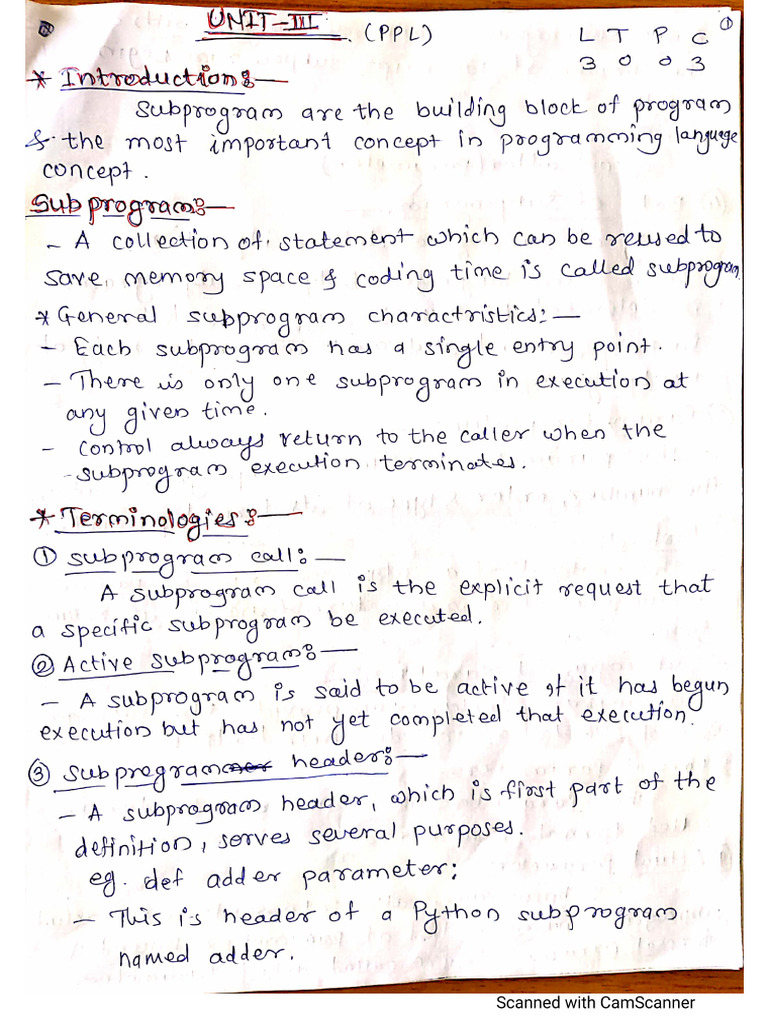 UNIT-III (PPL) ①
L T P C
3 0 0 3
* Introduction:—
Subprogram are the building block of program
& the most important concept in programming language
concept.
Subprogram:—
- A collection of statement which can be reused to
save memory space & coding time is called subprogram
* General subprogram charactristics:—
- Each subprogram has a single entry point.
- There is only one subprogram in execution at
any given time.
- control always return to the caller when the
subprogram execution terminates.
* Terminologies:—
① subprogram call:—
A subprogram call is the explicit request that
a specific subprogram be executed.
② Active subprogram:—
- A subprogram is said to be active if it has begun
execution but has not yet completed that execution.
③ subprogram header:—
- A subprogram header, which is first part of the
definition, serves several purposes.
eg. def adder parameter;
- This is header of a Python subprogram
named adder.
Scanned with CamScanner